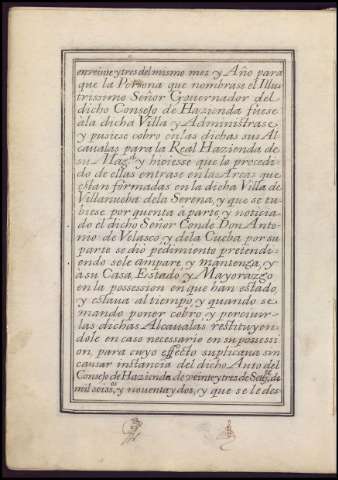 enveinte y tres del mismo mes y Año para
que la Persona que nombrase el Illus
trissimo Señor Governador del
dicho Consejo de Hazienda fuese
ala dicha Villa y Administrase,
y pusiese cobro en las dichas sus Al
cavalas para la Real Hazienda de
su Magd. y hiciesse que lo procedi
do de ellas entrase en las Arcas que
estan formadas en la dicha Villa de
Villanueba dela Serena, y que se tu
biese por quenta a parte, y noticia
do el dicho Señor Conde Don Anto
nio de Velasco y dela Cueba por su
parte se dio pedimiento pretendi
endo se le ampare, y mantenga, y
a su Casa Estado y Mayorazgo
en la possession en que han estado,
y estava al tiempo, y quando se
mando poner cobro, y percivir
las dichas Alcavalas restituyen
dole en caso necessario en su possesi
on, para cuyo effecto suplicava sin
causar instancia del dicho Auto del
Consejo de Hazienda de veinte y tres de Sete. de
mil seiss. y noventa y dos, y que se le des